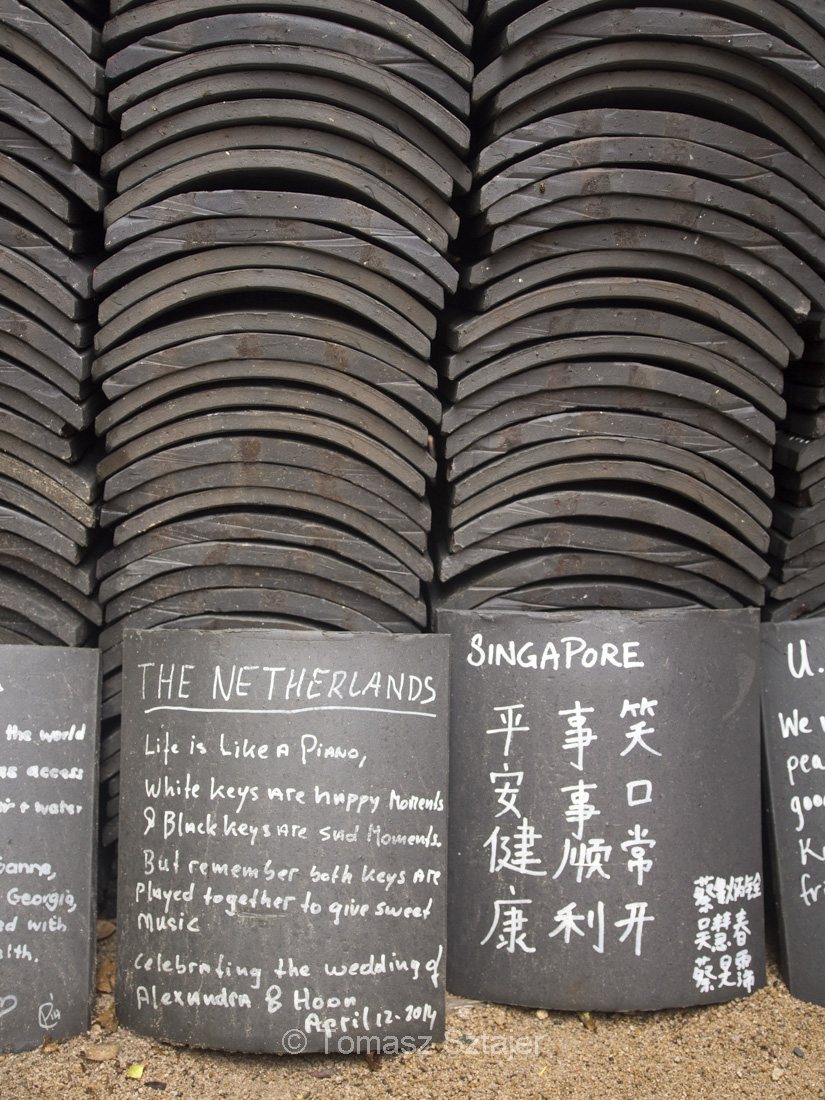 the world
access
water
Georgia,
with
THE NETHERLANDS
Life is Like A Piano,
White keys are happy Moments
& Black keys are sad Moments.
But remember both keys are
played together to give sweet
Music
Celebrating the wedding of
Alexandra & Hoon
April 12-2014
SINGAPORE
平安健康
事事顺利
笑口常开
吴慧春
U.
We
pea
goo
K
fri
© Tomasz Sztajer